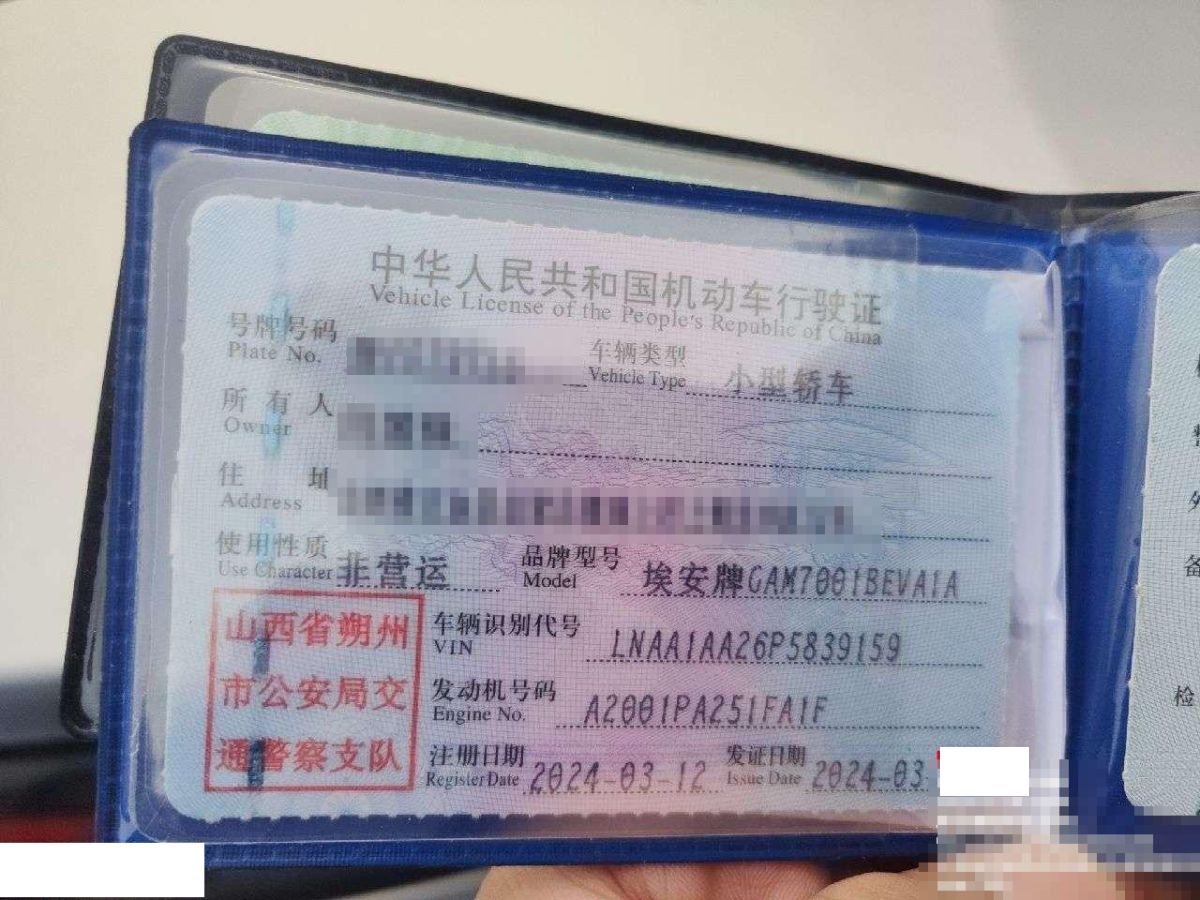 中华人民共和国机动车行驶证
Vehicle License of the People's Republic of China
号牌号码 车辆类型 小型轿车
Plate No. Vehicle Type
所有人
Owner
住址
Address
使用性质 非营运 品牌型号 埃安牌GAM7001BEVA1A
Use Character Model
山西省朔州
市公安局交
通警察支队
车辆识别代号 LNAA1AA26P5839159
VIN
发动机号码 A2001PA251FA1F
Engine No.
注册日期 2024-03-12 发证日期 2024-03-
Register Date Issue Date
备
检